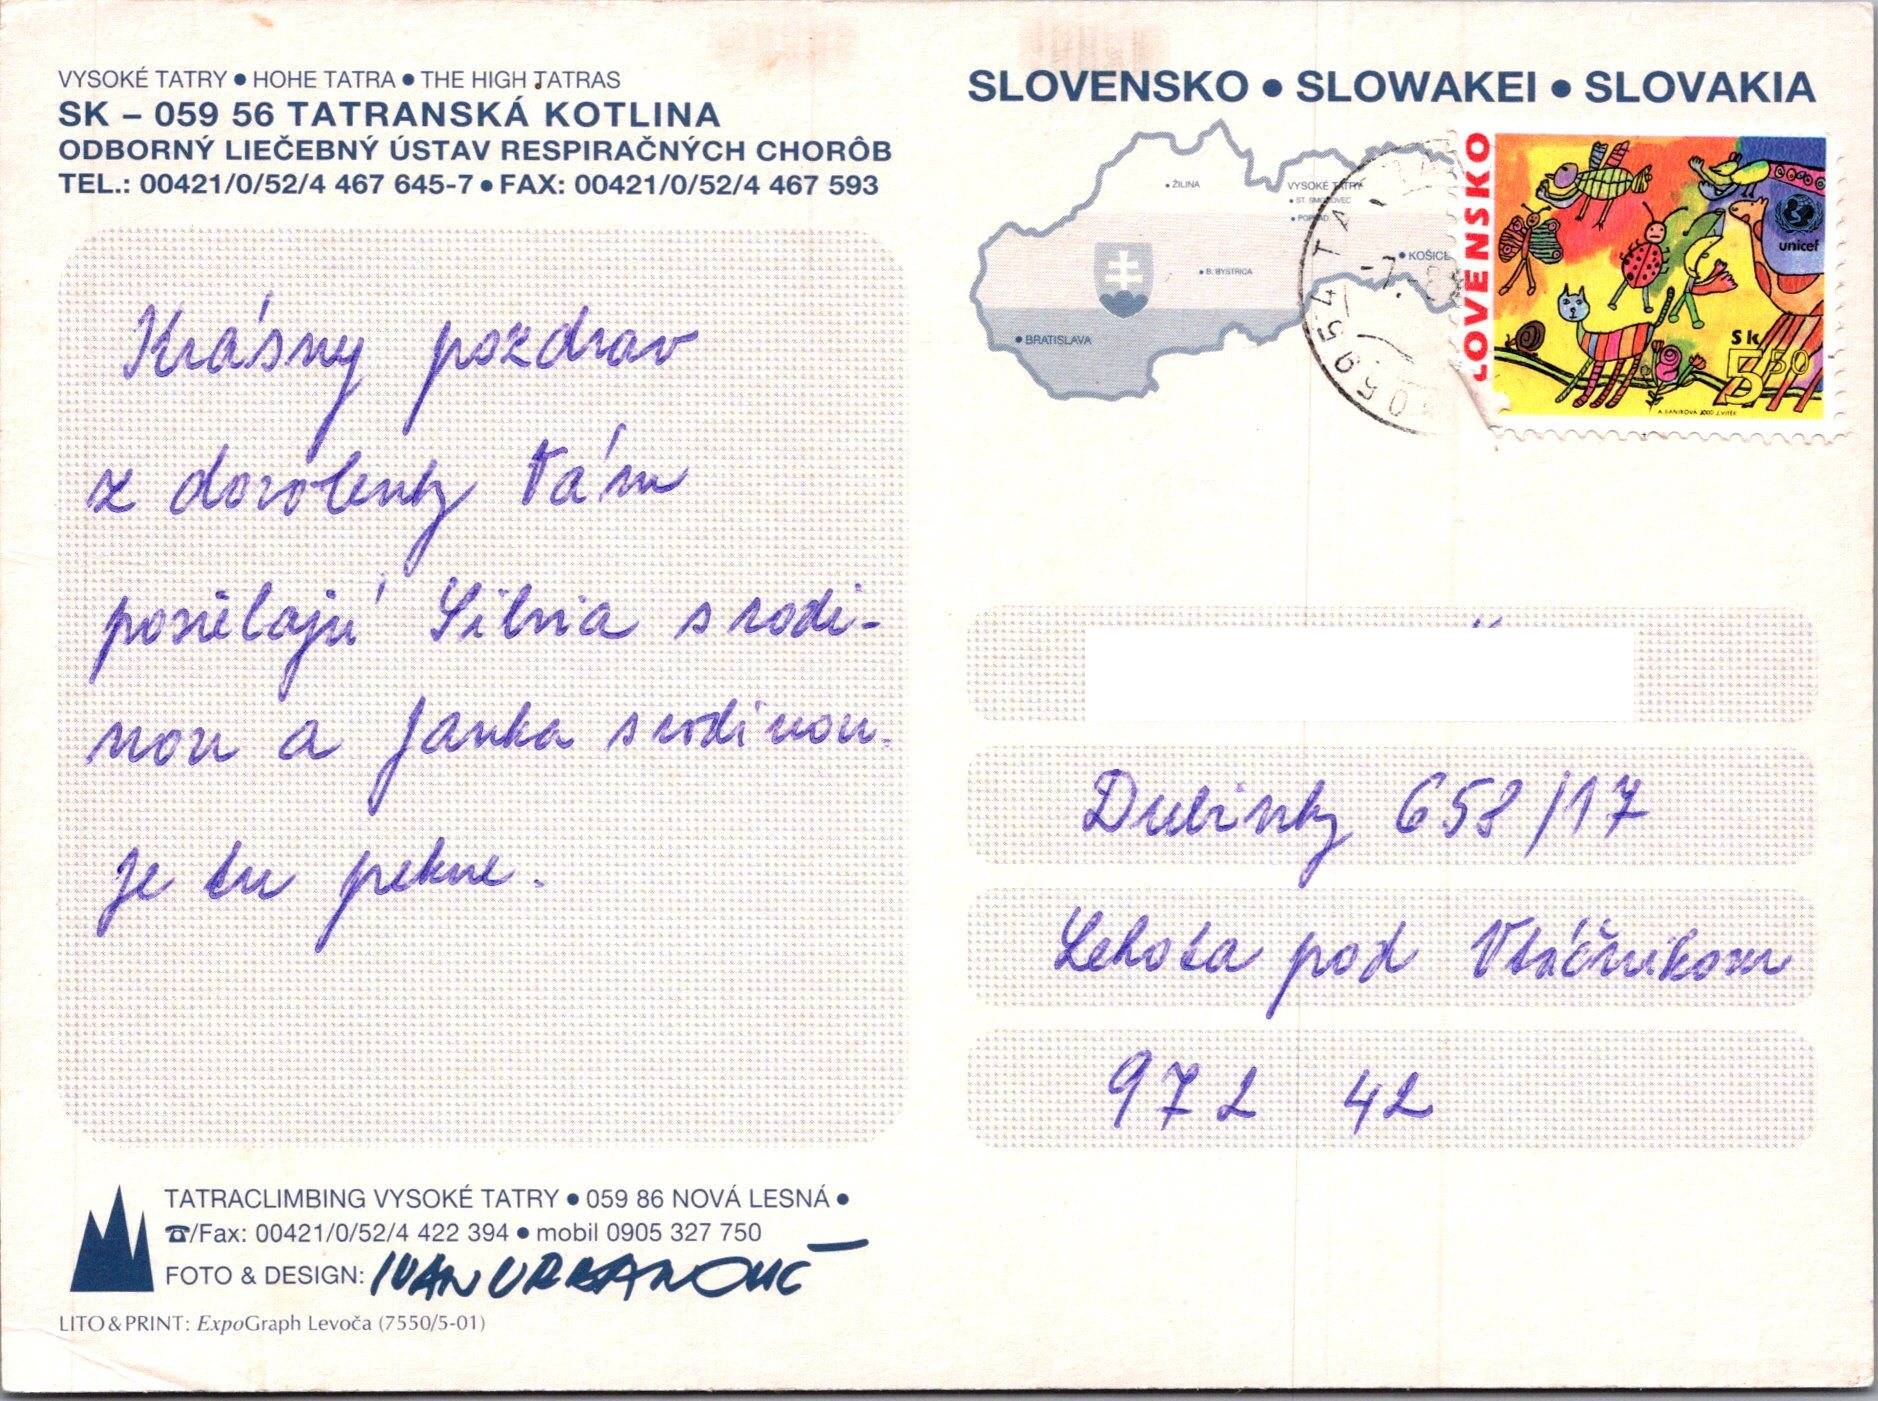 VYSOKÉ TATRY ● HOHE TATRA ● THE HIGH TATRAS
SK – 059 56 TATRANSKÁ KOTLINA
ODBORNÝ LIEČEBNÝ ÚSTAV RESPIRAČNÝCH CHORÔB
TEL.: 00421/0/52/4 467 645-7 ● FAX: 00421/0/52/4 467 593
Krásny pozdrav
z dovolenky Vám
posielajú Silvia s rodi-
nou a Janka s rodinou.
Je tu pekne.
TATRACLIMBING VYSOKÉ TATRY ● 059 86 NOVÁ LESNÁ ●
☎/Fax: 00421/0/52/4 422 394 ● mobil 0905 327 750
FOTO & DESIGN: IVAN URBANOVIČ
LITO & PRINT: ExpoGraph Levoča (7550/5-01)
SLOVENSKO ● SLOWAKEI ● SLOVAKIA
ŽILINA
VYSOKÉ TATRY
ST. SMOKOVEC
POPRAD
KOŠICE
B. BYSTRICA
BRATISLAVA
059 54 TA
-7.
SLOVENSKO
unicef
Sk
5 50
2000 J. VITEK
Dubinky 658/17
Lehota pod Vtáčnikom
972 42